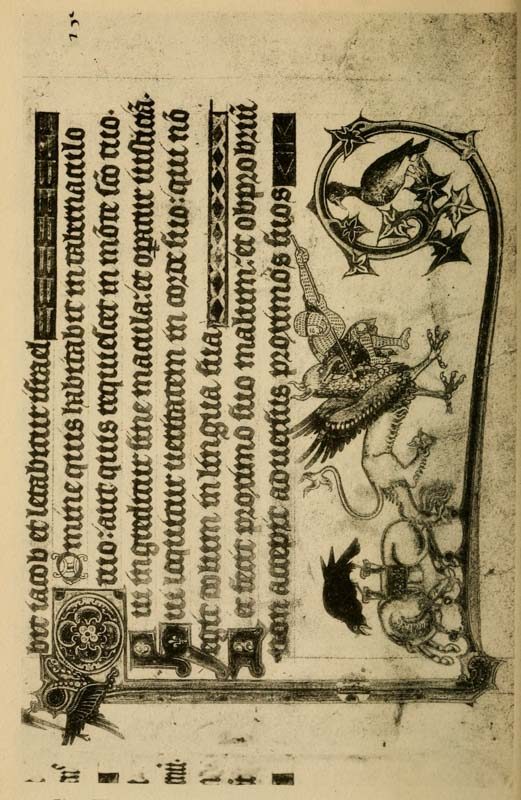 bit iacob et letabitur israel
Domine quis habitabit in tabernaculo
tuo: aut quis requiescet in mōte sc̄o tuo.
Qui ingreditur sine macula: et opatur iusticiā.
Qui loquitur ueritatem in corde suo: qui nō
egit dolum in lingua sua
Nec fecit proximo suo malum: et obprobriū
non accepit aduersus proximos suos